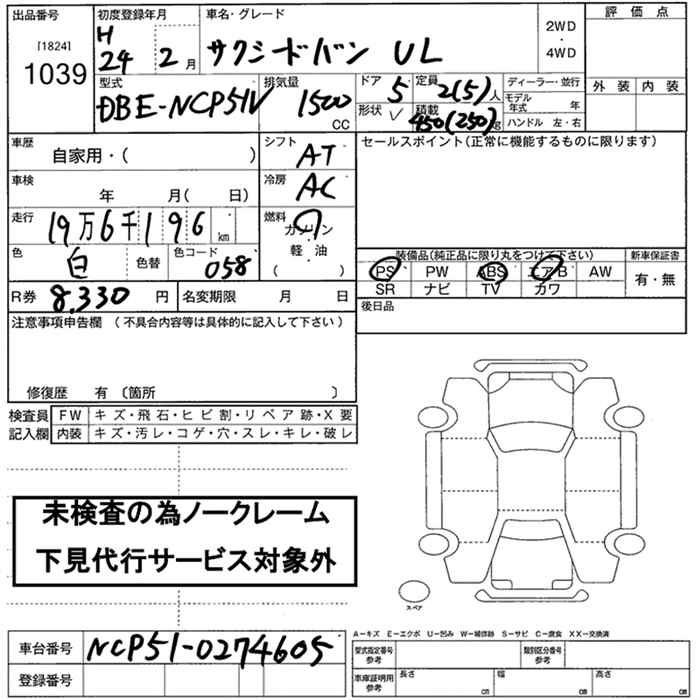 出品番号 初度登録年月 車名・グレード 評価点
[1824] H 2WD
1039 24 2月 サクシードバン UL ・
4WD
型式 排気量 ドア 定員 ディーラー・並行 外装 内装
DBE-NCP51V 1500 CC 5 2(5)人 モデル年式 年
形状 V 積載 450(250)kg ハンドル 左・右
車歴 シフト セールスポイント(正常に機能するものに限ります)
自家用・( ) AT
車検 冷房
年 月( 日) AC
走行 燃料
19万6千196km ガソリン
色 色コード 軽油
白 色替 058 ( )
装備品(純正品に限り丸をつけて下さい) 新車保証書
PS PW ABS エアB AW 有・無
SR ナビ TV カワ
R券 8,330円 名変期限 月 日 後日品
注意事項申告欄 (不具合内容等は具体的に記入して下さい)
修復歴 有 〔箇所 〕
検査員 FW キズ・飛石・ヒビ割・リペア跡・X要
記入欄 内装 キズ・汚レ・コゲ・穴・スレ・キレ・破レ
未検査の為ノークレーム
下見代行サービス対象外
スペア
A-キズ E-エクボ U-凹み W-補修跡 S-サビ C-腐食 XX-交換済
車台番号 NCP51-0274605 型式指定番号 参考 類別区分番号 参考
登録番号 車庫証明用 参考 長さ cm 幅 cm 高さ cm